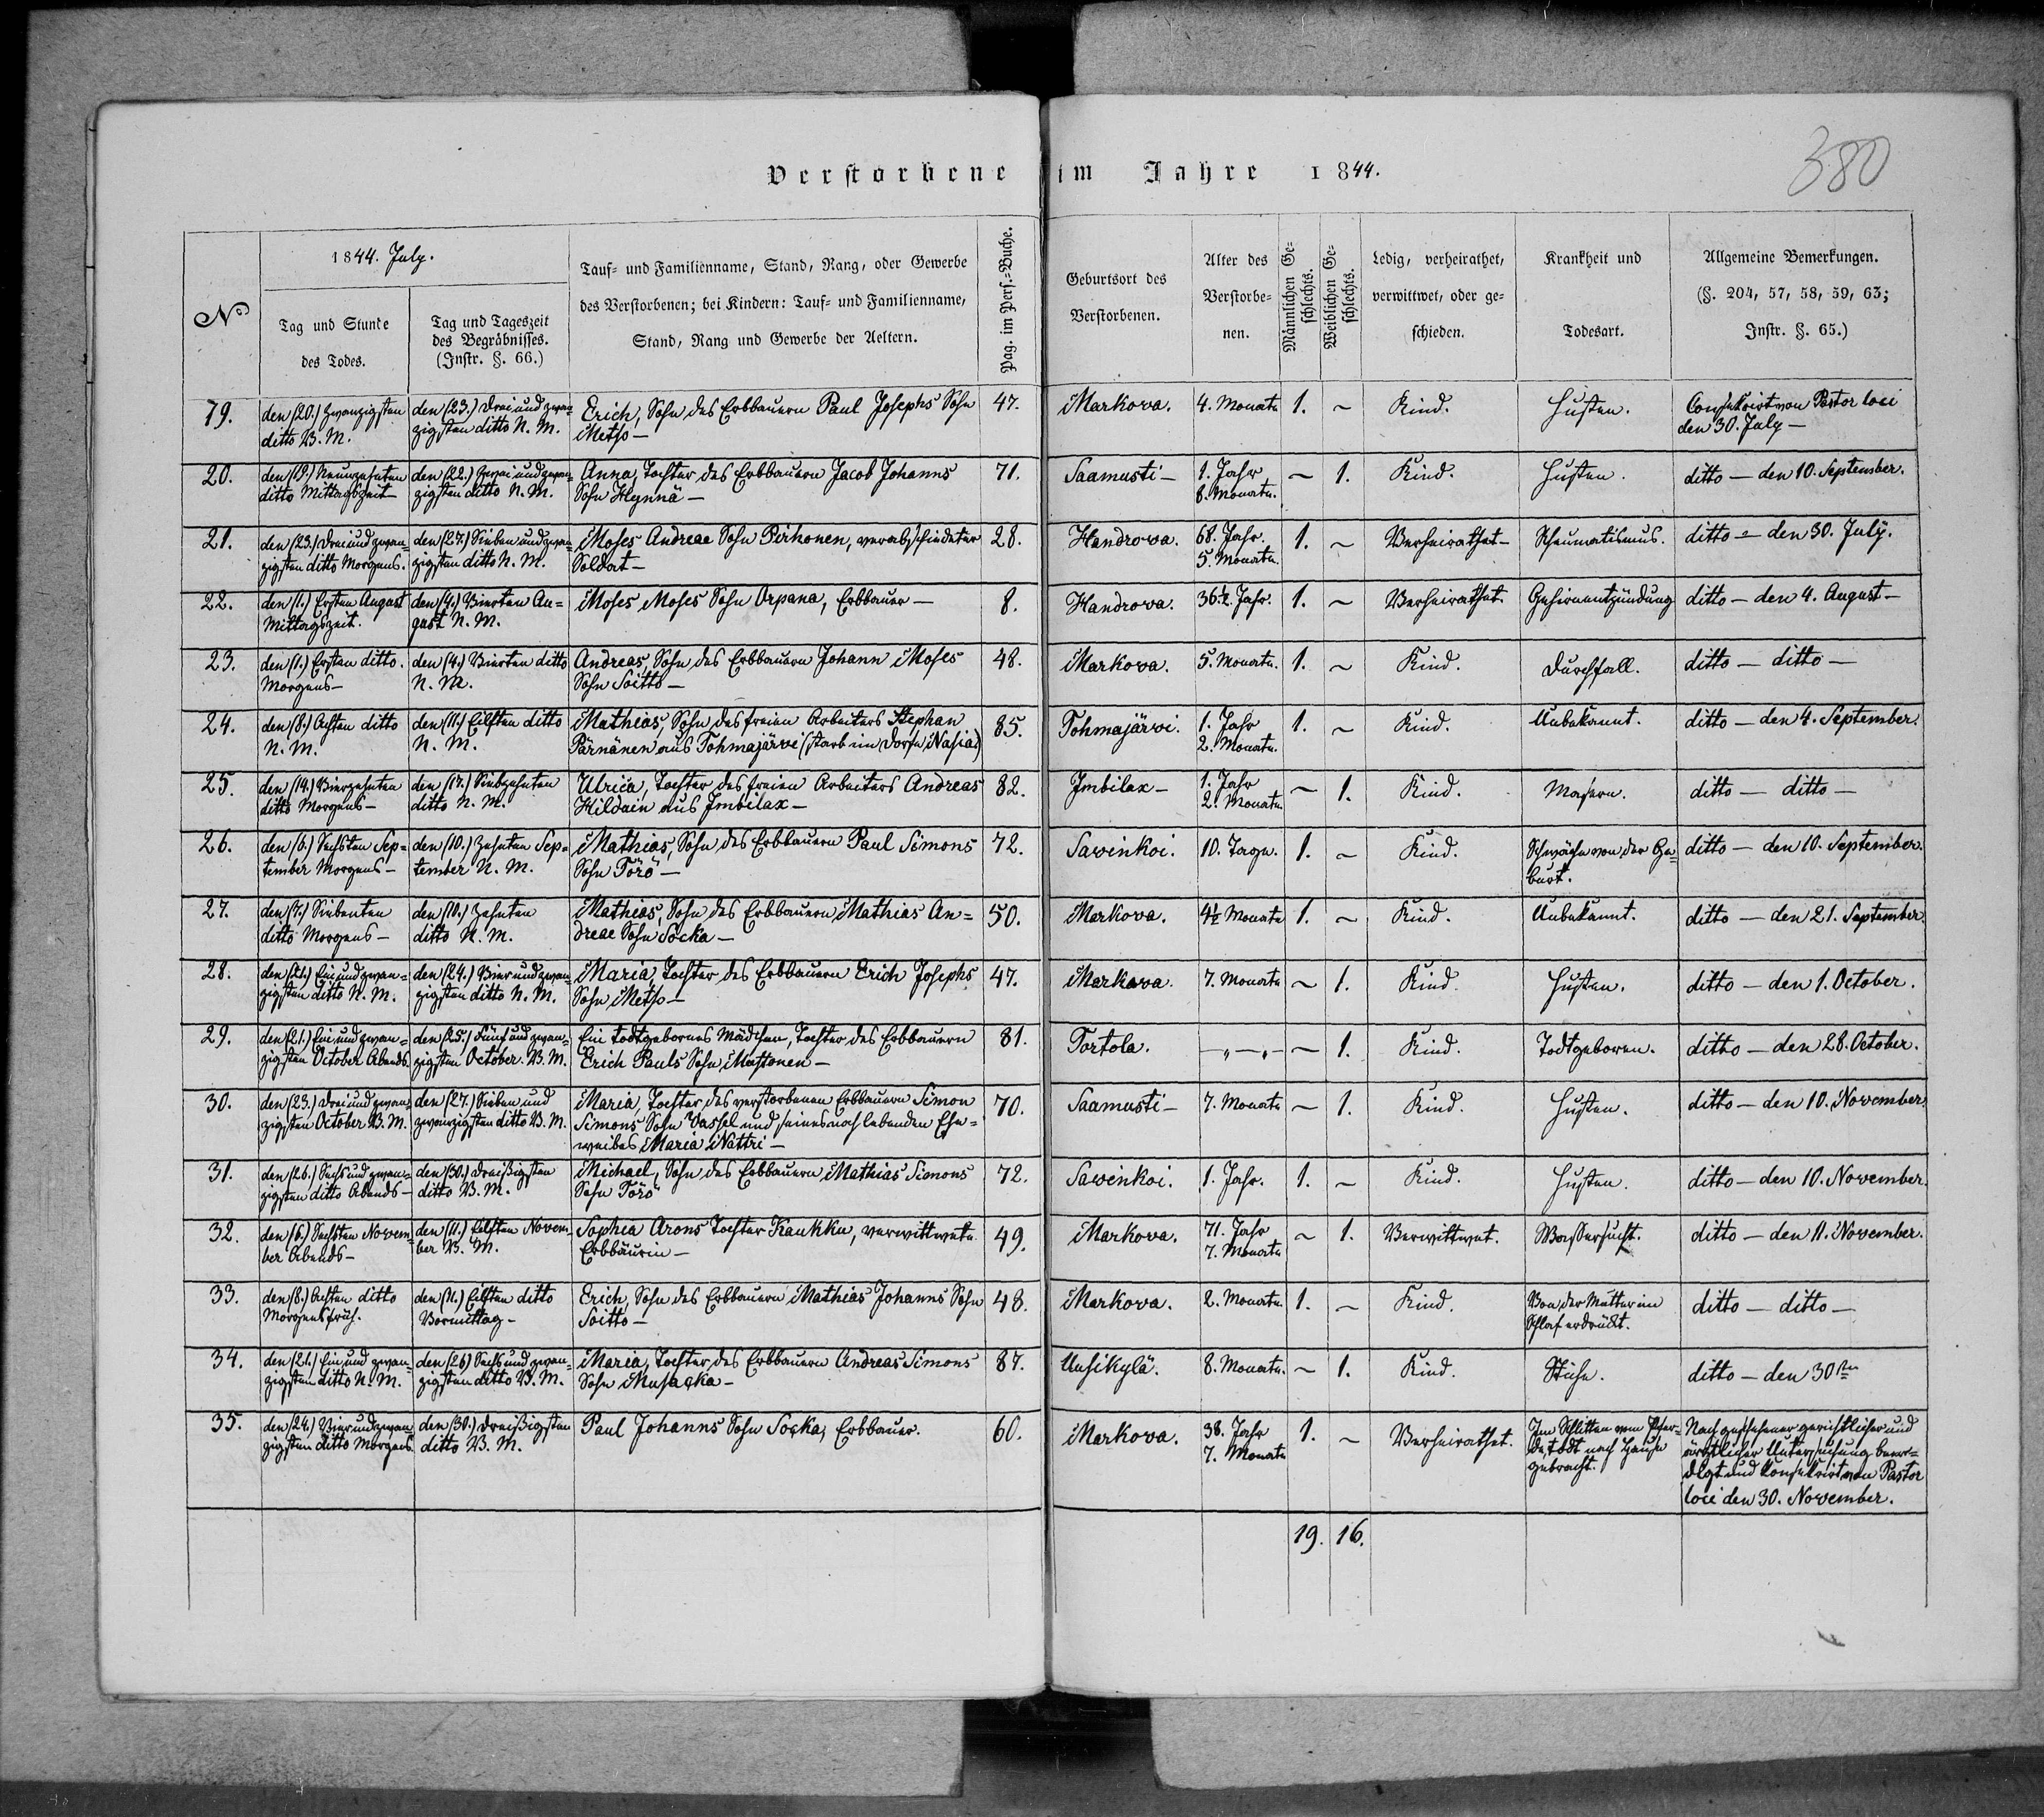 380
Verstorbene im Jahre 1844.
Nº
1844. July.
Tag und Stunde
des Todes.
Tag und Tageszeit
des Begräbnisses.
(Instr. §. 66.)
Tauf- und Familienname, Stand, Rang, oder Gewerbe
des Verstorbenen; bei Kindern: Tauf- und Familienname,
Stand, Rang und Gewerbe der Aeltern.
Pag. im Pers.-Buche.
Geburtsort des
Verstorbenen.
Alter des
Verstorbe-
nen.
Männlichen Ge-
schlechts.
Weiblichen Ge-
schlechts.
Ledig, verheirathet,
verwittwet, oder ge-
schieden.
Krankheit und
Todesart.
Allgemeine Bemerkungen.
(§. 204, 57, 58, 59, 63;
Instr. §. 65.)
19.
den (20.) Zwanzigsten
ditto V. M.
den (23.) Drei und zwan-
zigsten ditto N. M.
Erich, Sohn des Erbbauern Paul Josephs Sohn
Metso —
47.
Markova.
4. Monate
1.
~
Kind.
Husten.
Consekrirt von Pastor loci
den 30. July —
20.
den (19.) Neunzehnten
ditto Mittagszeit
den (22.) Zwei und zwan-
zigsten ditto N. M.
Anna, Tochter des Erbbauern Jacob Johanns
Sohn Hynnä —
71.
Saamusti —
1. Jahr
8. Monate.
~
1.
Kind.
Husten.
ditto — den 10. September.
21.
den (23.) Drei und zwan-
zigsten ditto Morgens.
den (27.) Sieben und zwan-
zigsten ditto N. M.
Moses Andreae Sohn Pirhonen, verabschiedeter
Soldat —
28.
Handrova.
68. Jahr.
5. Monate.
1.
~
Verheirathet —
Rheumatismus.
ditto — den 30. July.
22.
den (1.) Ersten August
Mittagszeit.
den (4.) Vierten Au=
gust N. M.
Moses Moses Sohn Orpana, Erbbauer —
8.
Handrova.
36½. Jahr.
1.
~
Verheirathet.
Gehirnentzündung
ditto — den 4. August —
23.
den (1.) Ersten ditto.
Morgens —
den (4.) Vierten ditto
N. M.
Andreas, Sohn des Erbbauern Johann Moses
Sohn Soitto —
48.
Markova.
5. Monate.
1.
~
Kind.
Durchfall.
ditto — ditto —
24.
den (8.) Achten ditto
N. M.
den (11.) Eilften ditto
N. M.
Mathias, Sohn des freien Arbeiters Stephan
Pärnänen aus Tohmajärvi (starb im Dorfe Nasia)
85.
Tohmajärvi.
1. Jahr
2. Monate.
1.
~
Kind.
Unbekannt.
ditto — den 4. September.
25.
den (14.) Vierzehnten
ditto Morgens —
den (17.) Siebzehnten
ditto N. M.
Ulrica, Tochter des freien Arbeiters Andreas
Hildain aus Imbilax —
82.
Imbilax —
1. Jahr
2. Monate.
~
1.
Kind.
Masern.
ditto — ditto —
26.
den (6.) Sechsten Sep=
tember Morgens —
den (10.) Zehnten Sep=
tember N. M.
Mathias, Sohn des Erbbauern Paul Simons
Sohn Törö —
72.
Savinkoi.
10. Tage.
1.
~
Kind.
Schwäche von der Ge-
burt.
ditto — den 10. September.
27.
den (7.) Siebenten
ditto Morgens —
den (10.) Zehnten
ditto N. M.
Mathias, Sohn des Erbbauern Mathias An=
dreae Sohn Socka —
50.
Markova.
4½ Monate
1.
~
Kind.
Unbekannt.
ditto — den 21. September.
28.
den (21.) Ein und zwan=
zigsten ditto N. M.
den (24.) Vier und zwan-
zigsten ditto N. M.
Maria, Tochter des Erbbauern Erich Josephs
Sohn Metso —
47.
Markova
7. Monate
~
1.
Kind.
Husten.
ditto — den 1. October.
29.
den (21.) Ein und zwan=
zigsten October Abends.
den (25.) Fünf und zwan-
zigsten October. V. M.
Ein todtgebornes Mädchen, Tochter des Erbbauern
Erich Pauls Sohn Mustonen —
81.
Tortola.
— „ — „ —
~
1.
Kind.
Todtgeboren.
ditto — den 28. October.
30.
den (23.) Drei und zwan-
zigsten October V. M.
den (27.) Sieben und
zwanzigsten ditto V. M.
Maria, Tochter des verstorbenen Erbbauern Simon
Simons Sohn Vassel und seines noch lebenden Ehe=
weibes Maria Nattri —
70.
Saamusti —
7. Monate
~
1.
Kind.
Husten.
ditto — den 10. November.
31.
den (26.) Sechs und zwan-
zigsten ditto Abends —
den (30.) Dreißigsten
ditto V. M.
Michael, Sohn des Erbbauern Mathias Simons
Sohn Törö
72.
Savinkoi.
1. Jahr.
1.
~
Kind.
Husten.
ditto — den 10. November.
32.
den (6.) Sechsten Novem-
ber Abends —
den (11.) Eilften Novem-
ber V. M.
Sophia Arons Tochter Kaukku, verwittwete
Erbbäurin —
49.
Markova.
71. Jahr
7. Monate
~
1.
Verwittwet.
Wassersucht.
ditto — den 11. November.
33.
den (8.) Achten ditto
Morgens früh.
den (11.) Eilften ditto
Vormittag —
Erich, Sohn des Erbbauern Mathias Johanns Sohn
Soitto —
48.
Markova.
2. Monate.
1.
~
Kind.
Von der Mutter im
Schlaf erdrückt.
ditto — ditto —
34.
den (21.) Ein und zwan-
zigsten ditto N. M.
den (26) Sechs und zwan-
zigsten ditto V. M.
Maria, Tochter des Erbbauern Andreas Simons
Sohn Musacka —
87.
Uusikylä.
8. Monate.
~
1.
Kind.
Stiche.
ditto — den 30ten
35.
den (24.) Vier und zwan-
zigsten ditto Morgens
den (30.) Dreißigsten
ditto V. M.
Paul Johanns Sohn Socka, Erbbauer.
60.
Markova.
38. Jahr
7. Monate
1.
~
Verheirathet.
Im Schlitten vom Pfer-
de, todt nach Hause
gebracht.
Nach geschehener gerichtlicher und
ärztlicher Untersuchung beer=
digt und konsekrirt von Pastor
loci den 30. November.
19. 16.